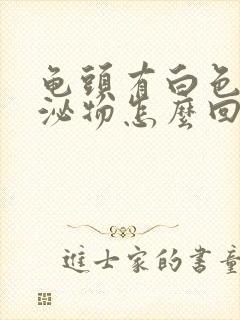 龟頭有白色
泌物怎麼回
進士家的書童